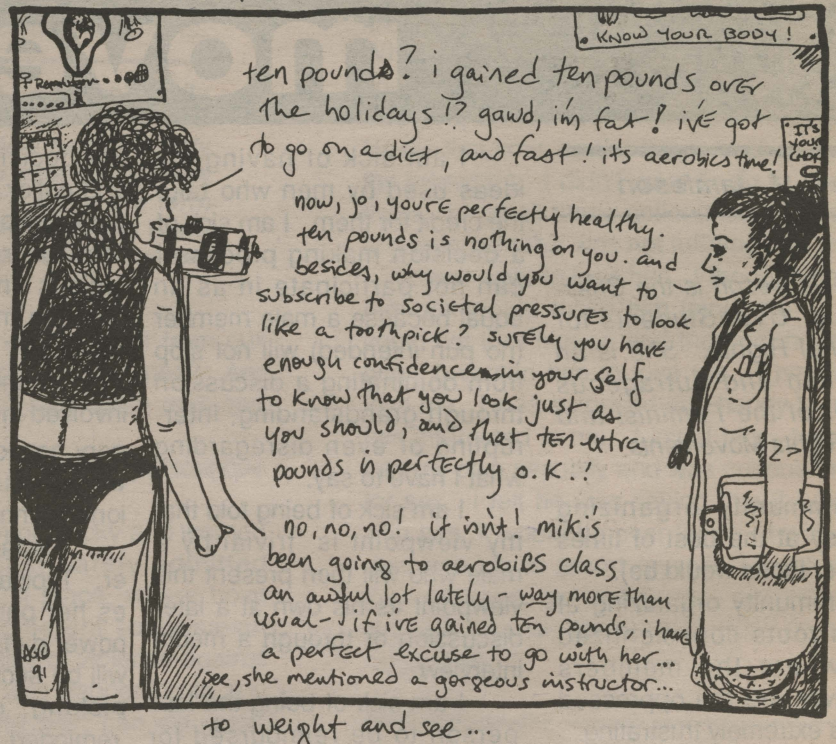 KNOW YOUR BODY!
ten pounds? i gained ten pounds over
the holidays!? gawd, i'm fat! i've got
to go on a diet, and fast! it's aerobics time!
IT'S
YOUR
now, jo, you're perfectly healthy.
ten pounds is nothing on you. and
besides, why would you want to
subscribe to societal pressures to look
like a toothpick? surely you have
enough confidence in your self
to know that you look just as
you should, and that ten extra
pounds is perfectly o.k.!
no, no, no! it isn't! miki's
been going to aerobics class
an awful lot lately - way more than
usual - if i've gained ten pounds, i have
a perfect excuse to go with her...
see, she mentioned a gorgeous instructor...
91
to weight and see...